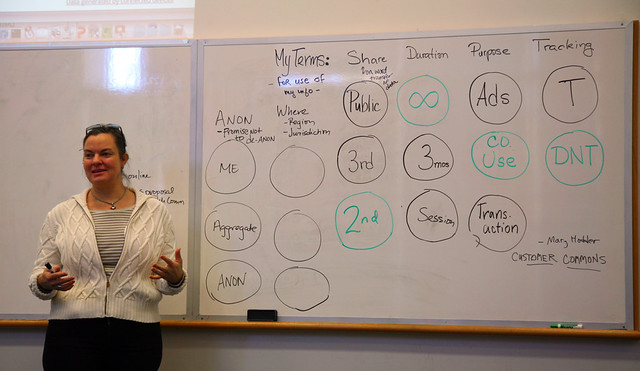 My Terms:
- for use of
my info -
Share
Duration
Purpose
Tracking
Public
∞
Ads
T
ANON
- Promise not
to de-ANON
Where
- Region
- Jurisdiction
ME
3rd
3mos
CO
Use
DNT
Aggregate
2nd
Session
Trans-
action
ANON
- Mary Hodder
CUSTOMER COMMONS
online
proposal